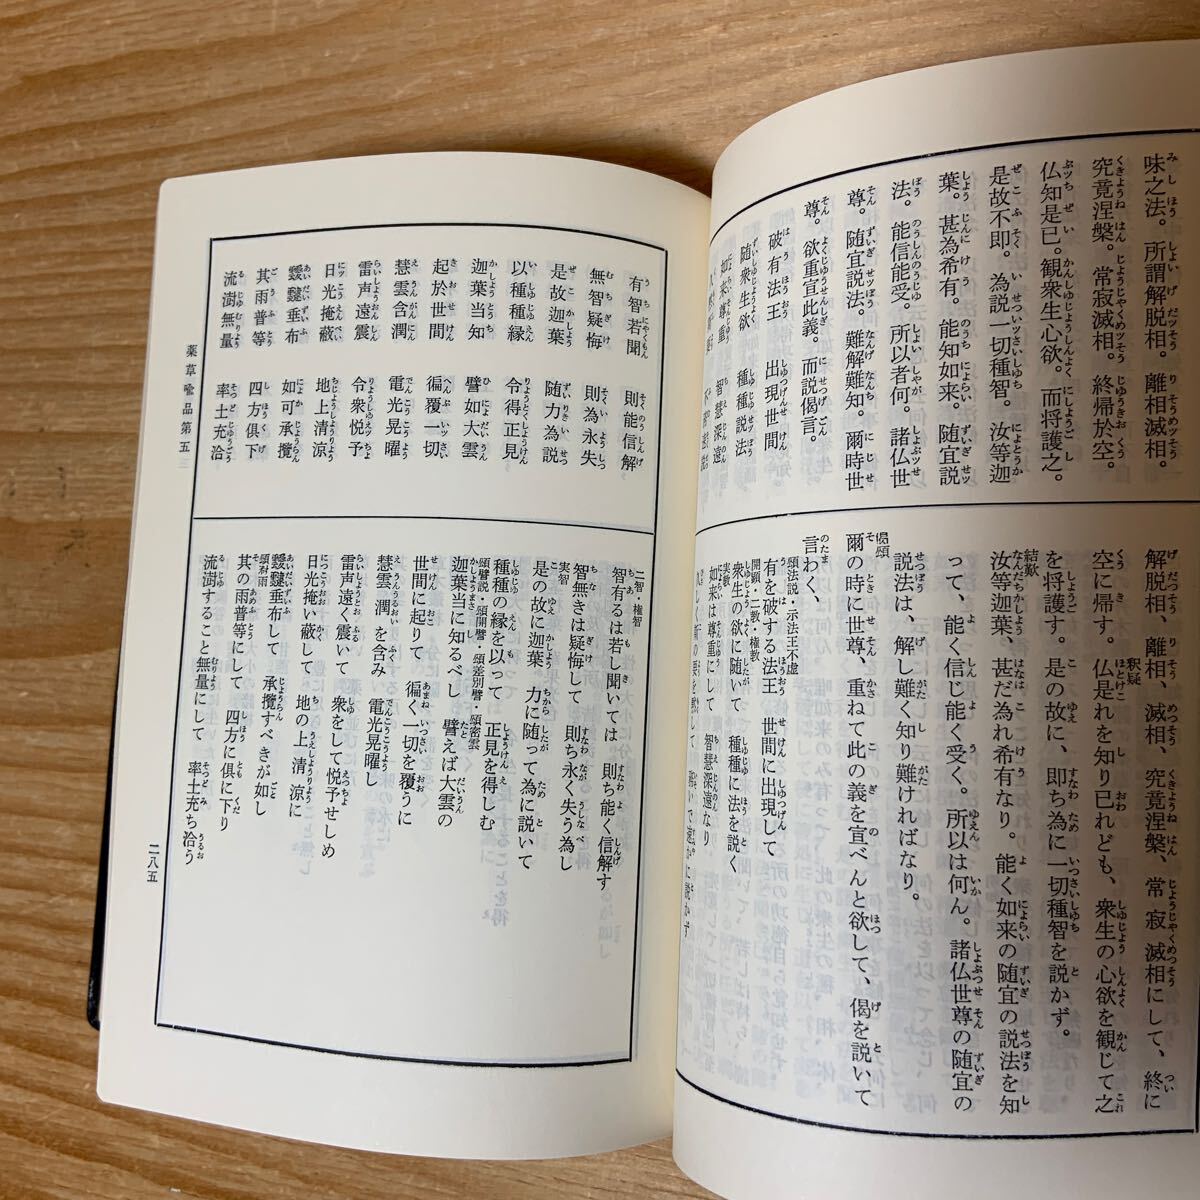 味之法。所謂解脱相。離相滅相。
究竟涅槃。常寂滅相。終帰於空。
仏知是已。観衆生心欲。而将護之。
是故不即。為説一切種智。汝等迦
葉。甚為希有。能知如来。随宜説
法。能信能受。所以者何。諸仏世
尊。随宜説法。難解難知。爾時世
尊。欲重宣此義。而説偈言。
破有法王　出現世間
随衆生欲　種種説法
如来尊重　智慧深遠
解脱相、離相、滅相、究竟涅槃、常寂滅相にして、終に
空に帰す。仏是れを知り已れども、衆生の心欲を観じて之
釈疑
を将護す。是の故に、即ち為に一切種智を説かず。
結歎
汝等迦葉、甚だ為れ希有なり。能く如来の随宜の説法を知
って、能く信じ能く受く。所以は何ん。諸仏世尊の随宜の
説法は、解し難く知り難ければなり。
偈頌
爾の時に世尊、重ねて此の義を宣べんと欲して、偈を説いて
言わく、
頌法説・示法王不虚
有を破する法王　世間に出現して
開顕・二教・権教
衆生の欲に随いて　種種に法を説く
実教
如来は尊重にして　智慧深遠なり
有智若聞　則能信解
無智疑悔　則為永失
是故迦葉　随力為説
以種種縁　令得正見
迦葉当知　譬如大雲
起於世間　徧覆一切
慧雲含潤　電光晃曜
雷声遠震　令衆悦予
日光掩蔽　地上清涼
靉靆垂布　如可承攬
其雨普等　四方倶下
流澍無量　率土充洽
二智・権智
智有るは若し聞いては　則ち能く信解す
実智
智無きは疑悔して　則ち永く失う為し
是の故に迦葉　力に随って為に説いて
種種の縁を以って　正見を得しむ
頌譬説・頌開譬・頌差別譬・頌密雲
迦葉当に知るべし　譬えば大雲の
世間に起りて　徧く一切を覆うに
慧雲潤を含み　電光晃曜し
雷声遠く震いて　衆をして悦予せしめ
日光掩い蔽て　地の上清涼に
靉靆垂布して　承攬すべきが如し
頌注雨
其の雨普等にして　四方に倶に下り
流澍すること無量にして　率土充ち洽う
薬草喩品第五
二八五